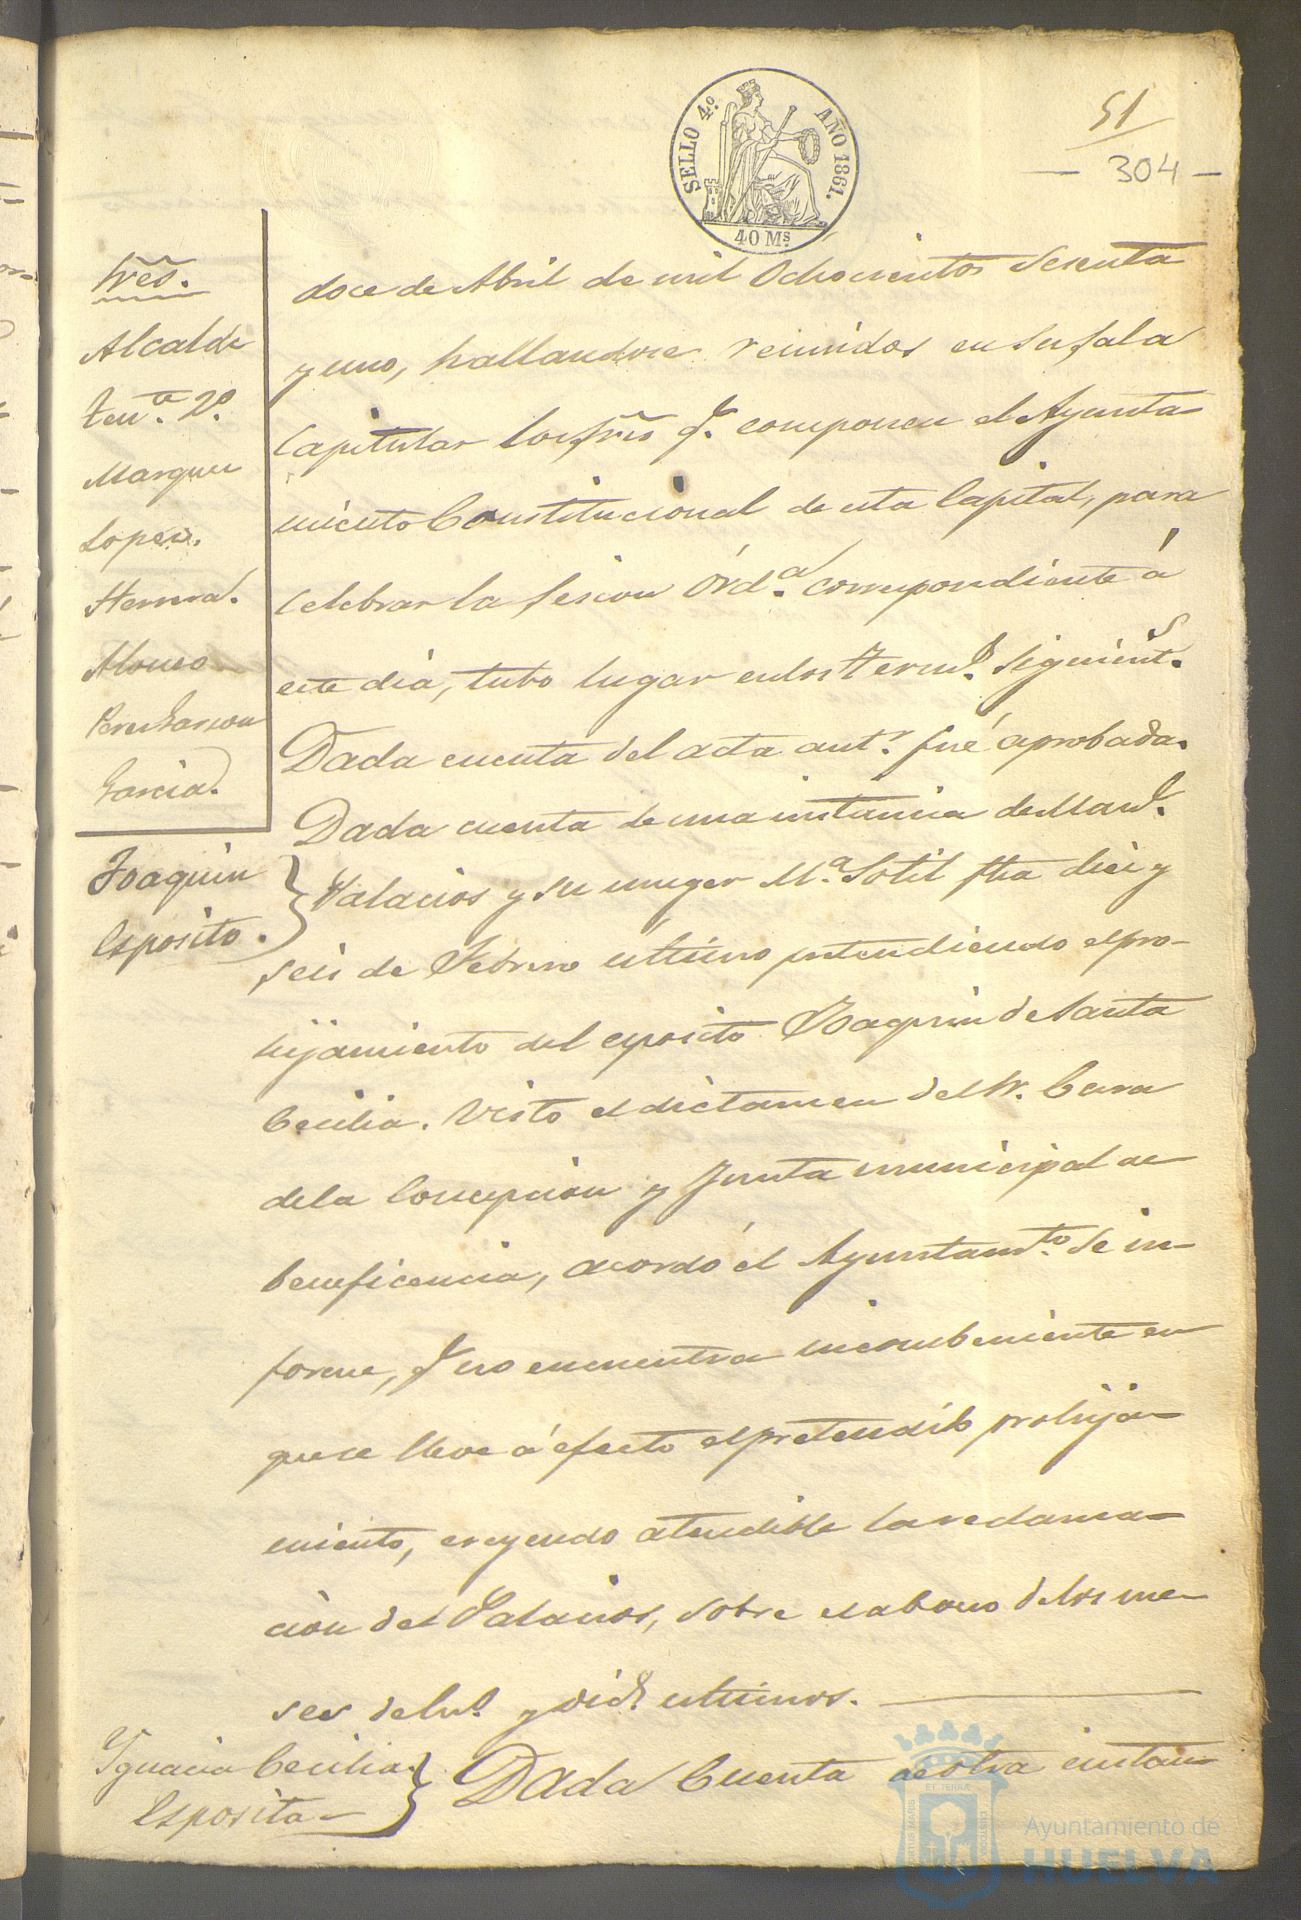 SELLO 4.º AÑO 1861.
40 Ms
51
— 304 —
Sres.
Alcalde
Ten.te 2º
Marquez
Lopez.
Herrera.
Alonso
Perez Garzon
Garcia.
doce de Abril de mil Ochocientos Sesenta
y uno, hallandose reunidos en su Sala
Capitular los Sres q.e componen el Ayunta-
miento Constitucional de esta Capital, para
celebrar la Sesion Ord.a correspondiente á
este dia, tubo lugar en los term.s siguient.s
Dada cuenta del acta ant.r fué aprobada.
Joaquin
Esposito.
Dada cuenta de una instancia de Man.l
Palacios y su muger M.a Sotil fha diez y
seis de Febrero ultimo pretendiendo el pro-
hijamiento del esposito Joaquin de Santa
Cecilia. Visto el dictamen del Sr. Cura
de la Concepcion y Junta municipal de
beneficencia, acordó el Ayuntam.to se in-
forme, q.e no encuentra incombeniente en
que se lleve á efecto el pretendido prohija-
miento, creyendo atendible la reclama-
cion del Palacios, sobre el abono de los me-
ses de y Dic.e ultimos.
Ygnacia Cecilia.
Esposita
Dada Cuenta de otra instan-
Ayuntamiento de
HUELVA